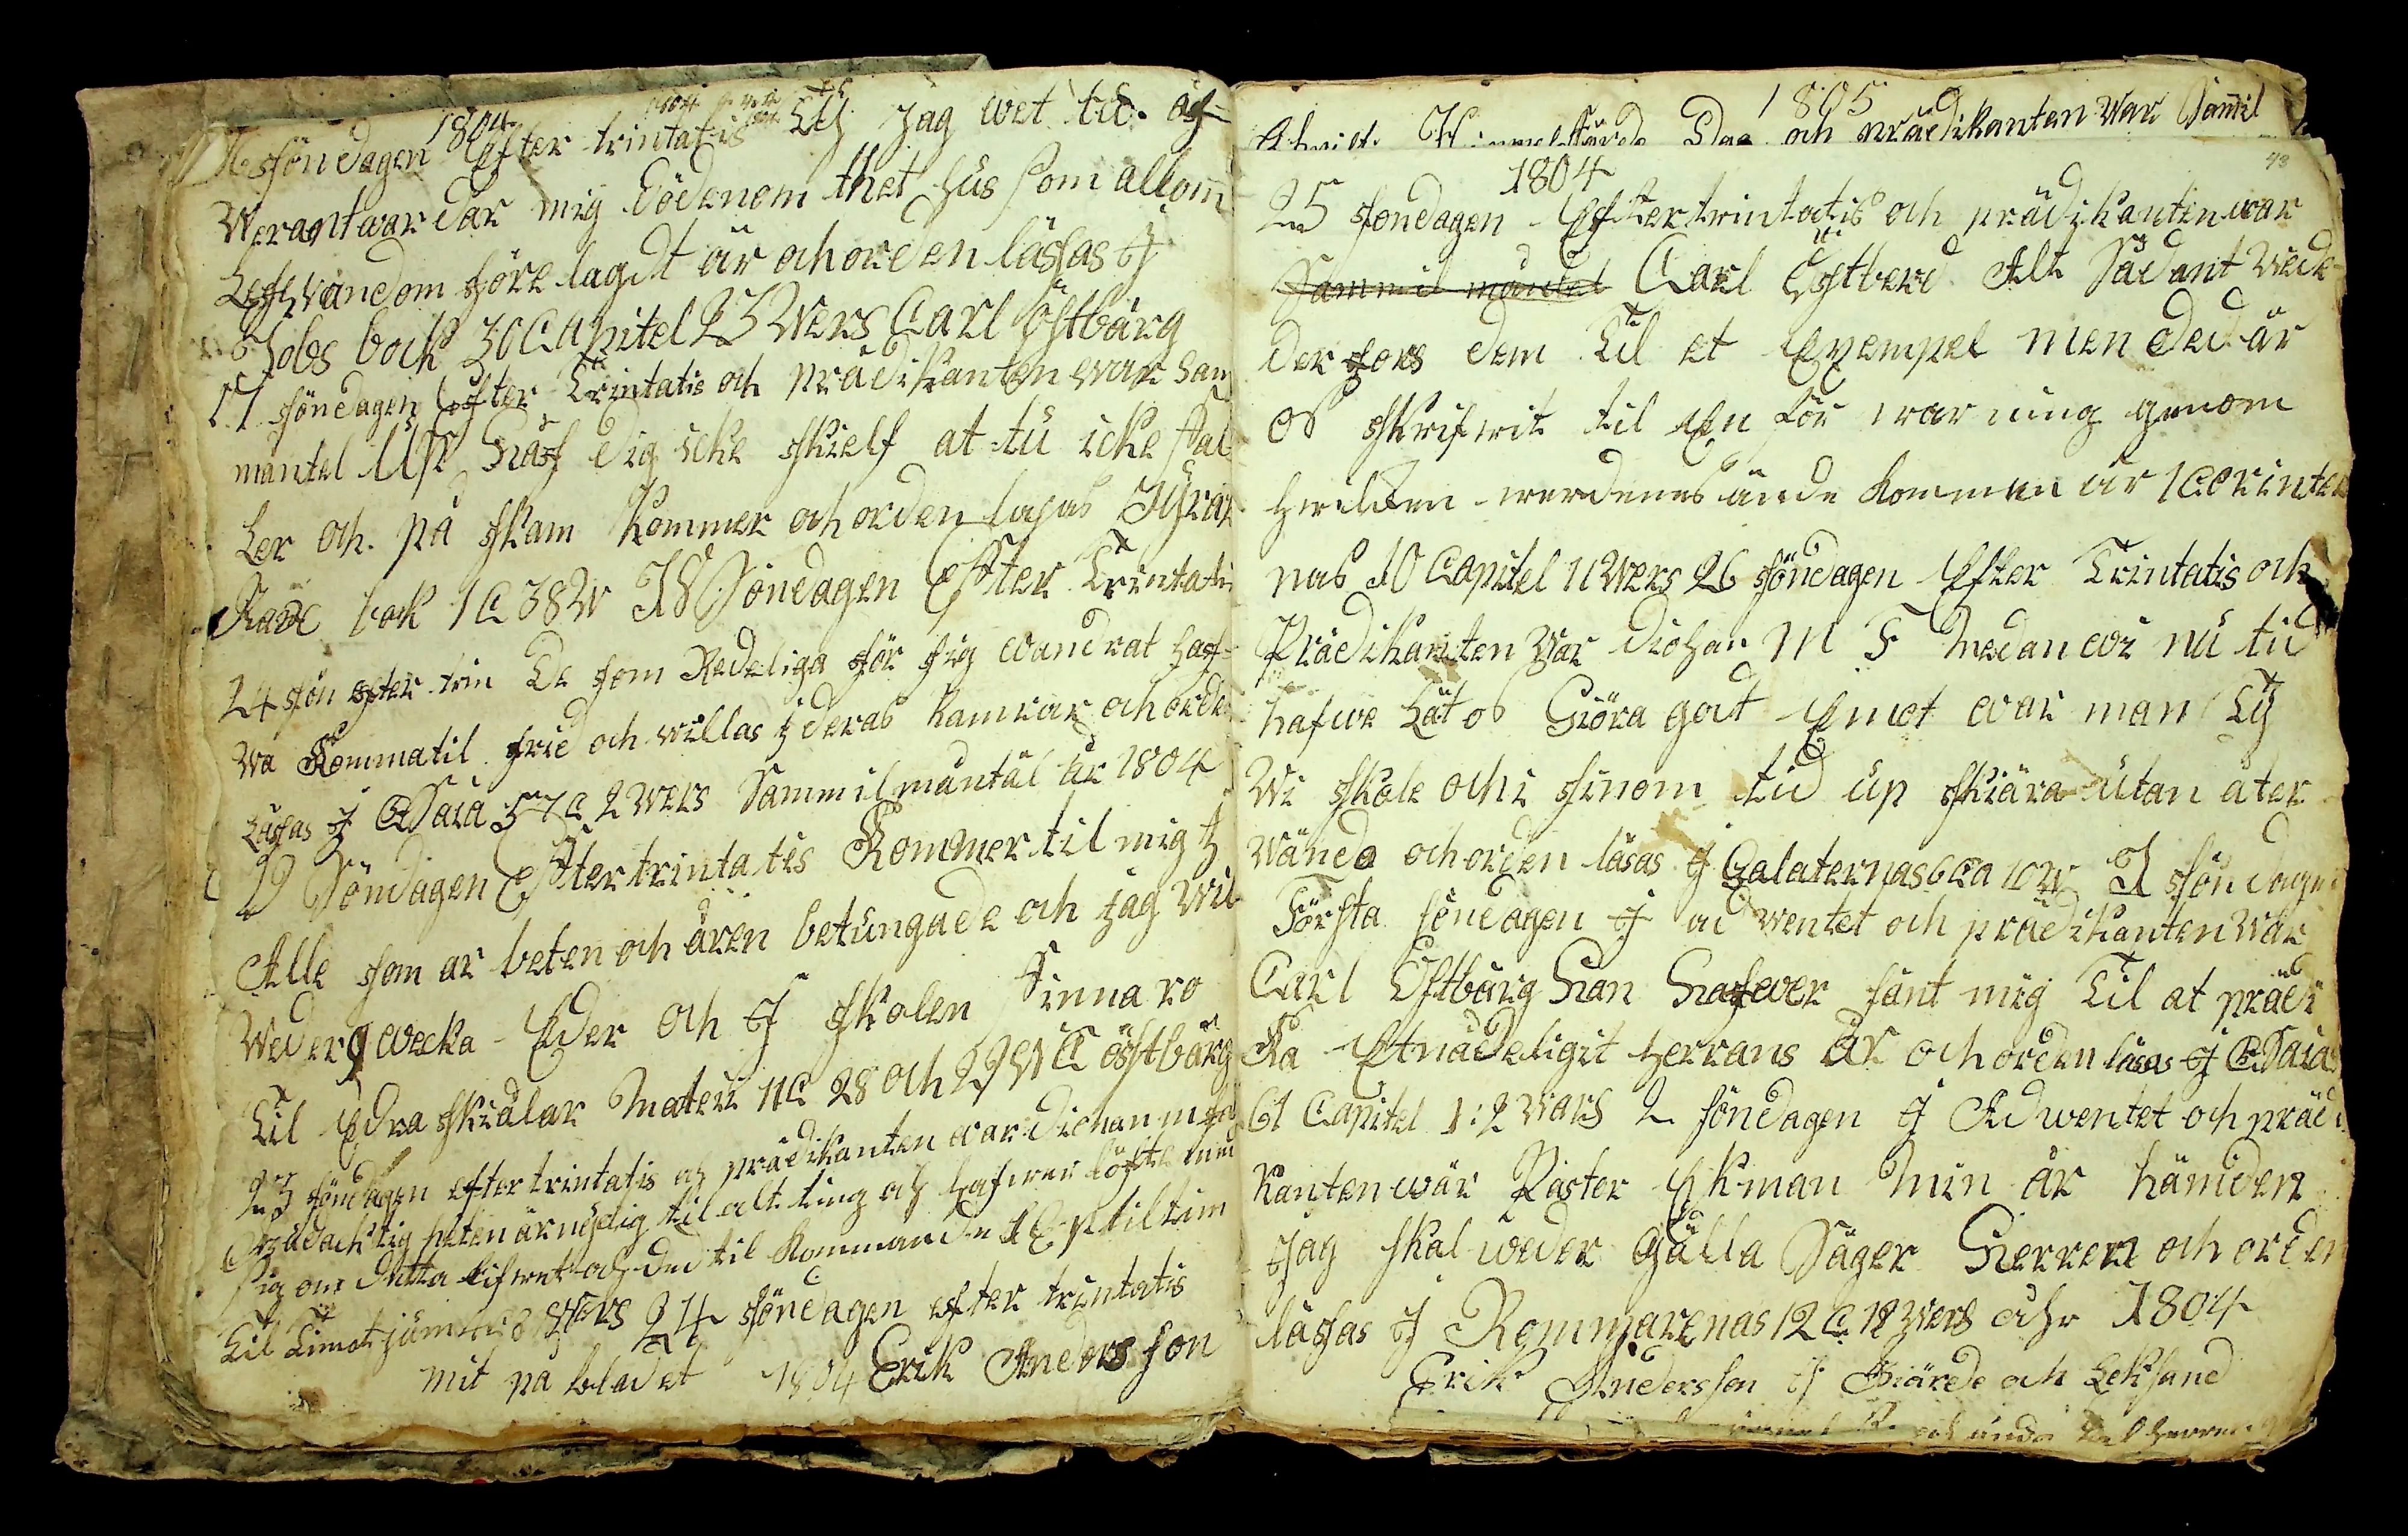 1804
söndagen Efter trintatis Ty Jag wet tu. öf=
werantwardar mig Dödenom thet hus som allom
Lefwandom förelagdt är och orden läsas J
Jobs bock 30 Capitel 23 Wers Carl Östbärg
17 söndagen Efter Trintatis och prädikanten war Sam
mantel Up Häf dig icke skielf at tu icke fal
ler och på skam kommer och orden läsas Syrax
bok 1 C 38 W 18 Söndagen Effter Trintatis
24 sön efter trin De som Redeliga för sig wandrat haf=
wa Komma til frid och willas j deras kamrar och orden
Läsas J Esaia 57 C 2 wers Sammil mantäl år 1804
19 Söndagen Eftter trintatis Kommer til mig j
Alle som ar beten och ären betungade och jag wil
Wedergwecka Eder och J skolen Finna ro
Til Edra skiälar Mateü 11 C 28 och 29 W C östbärg
23 söndagen efter trintatis och prädikanten war diohan m fa
Gudachtig heten är nÿdig til alt ting och hafwer löfte med
sig om detta lifwet och det til kommande 1 Epistil tim
til Timot 8 wers 24 söndagen efter trintatis
mit på bladet 1804 Erik Anders son
1805
Himmelsfärds Dag och prädikanten War Samil
43
1804
25 söndagen Efter trintatis och prädikanten war
Sammil mantel Carl Östberd Alt Sådant Wede
derfors dem Til et Exempel men ded är
os skrifwit til En för war ning genom
hwilken werdenes ände kommen är 1 Corinter
nas 10 Capitel 11 Wers 26 söndagen Efter Trintatis och
Prädikanten war diohan M F Medan wi nu tid
hafwe Låt os Giöra godt Emot war man Tÿ
Wi skole och i sinom tid up skiära utan åter
wändo och orden läsas J Galaternas 6 Ca 10 W J söndagen
Första söndagen J ad wentet och prädikanten war
Carl Östbärg Han Hafwer sänt mig Til at prädi
Ka Et nådeligit Herrans År och orden läsas J Esaia
61 Capitel 1:2 wars 2 söndagen J Adwentet och prädi
kanten wär Paster Ekman Min är hämden
Jag skal weder Gälla Säger Herren och orden
läsas J Rommarenas 12 C 19 wers åhr 1804
Erik Anders son if Giärde och Leksand
och unda Herren